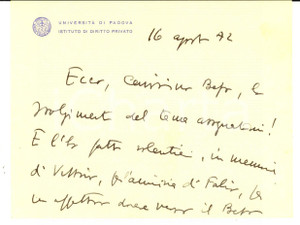 UNIVERSITÀ DI PADOVA
ISTITUTO DI DIRITTO PRIVATO
16 agosto 72
Ecco, carissimo Bepo, lo
svolgimento del tema assegnatomi!
E l'ho fatto volentieri, in memoria
di Vittorio, per amicizia di Fabio, per
un affettuoso dovere verso il Bepo